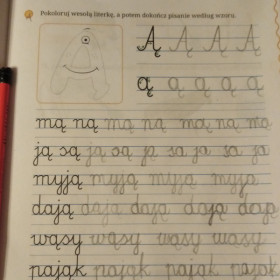 Pokoloruj wesołą literkę, a potem dokończ pisanie według wzoru.
Ą Ą Ą Ą
ą ą ą ą ą
mą ną mą ną mą na ma
ją są ją są ję sa ja sa ja
myją myją myją myja
dają dają dają dają dają
wąsy wąsy wąsy wąsy
pająk pająk pająk pająk